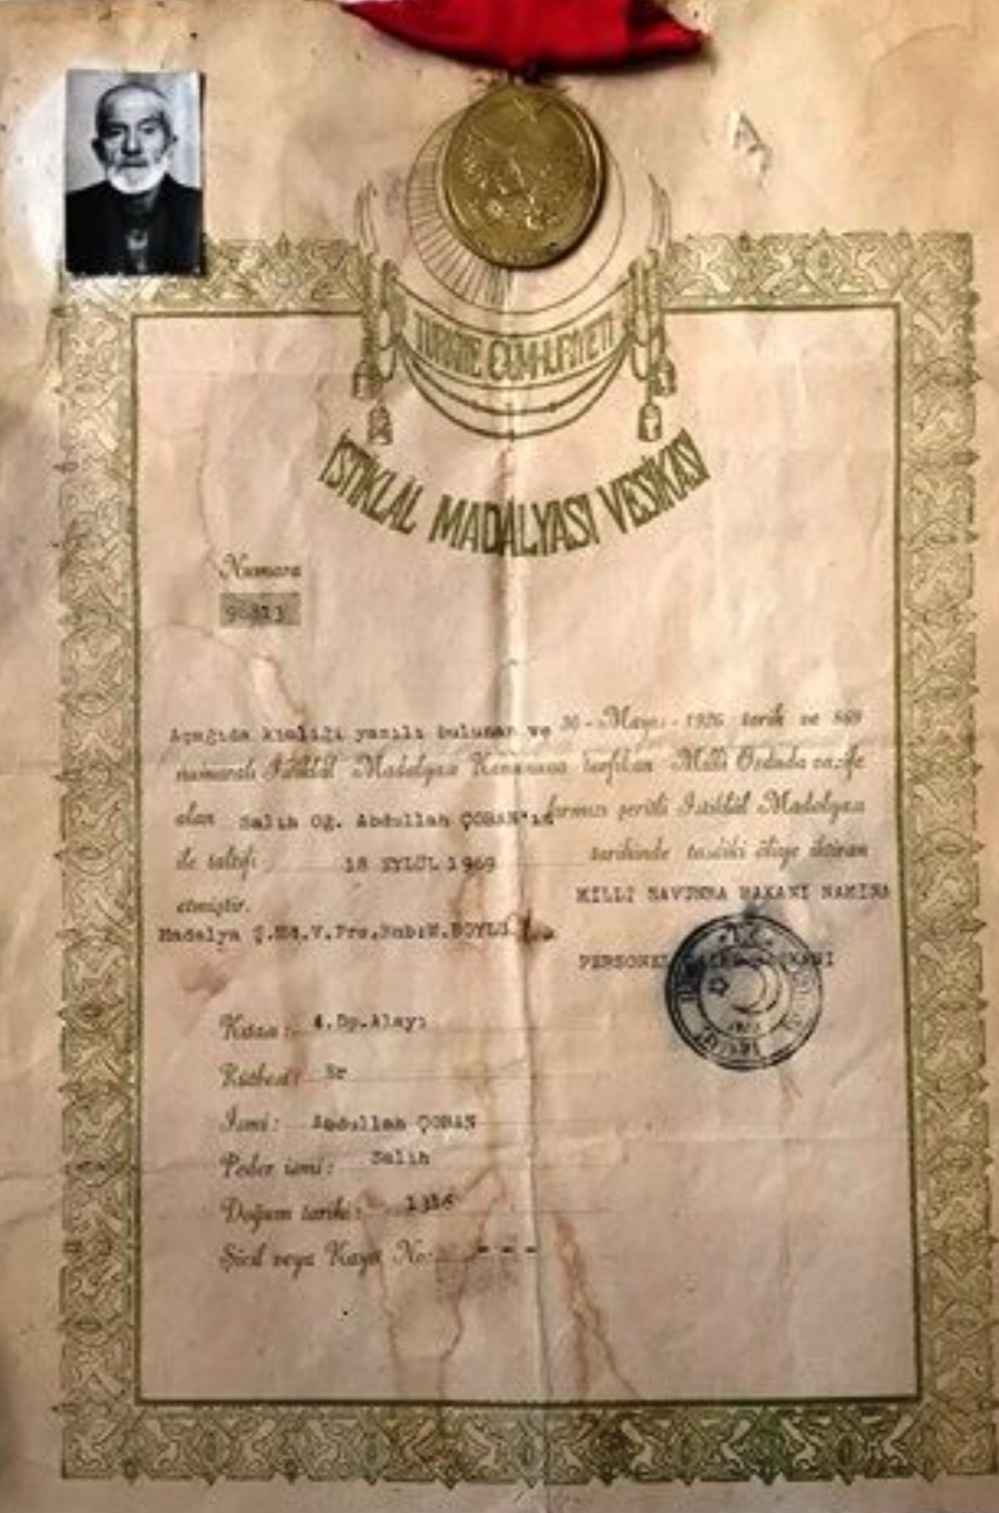 TÜRKİYE CUMHURİYETİ
İSTİKLÂL MADALYASI VESİKASI
Numara
Aşağıda kimliği yazılı bulunan ve 30-Mayıs-1926 tarih ve 869
numaralı İstiklâl Madalyası Kanununa tevfikan Milli Orduda vazife
alan Salih Oğ. Abdullah ÇOBAN'ın kırmızı şeritli İstiklâl Madalyası
ile taltifi 18 EYLÜL 1969 tarihinde tasdiki âliye iktiran
etmiştir.
MİLLİ SAVUNMA BAKANI NAMINA
Madalya Ş.Md.V.
PERSONEL DAİRE BAŞKANI
Kıtası: 4.Dp.Alayı
Rütbesi: Er
İsmi: Abdullah ÇOBAN
Peder ismi: Salih
Doğum tarihi: 1316
Sicil veya Kayıt No: - - -